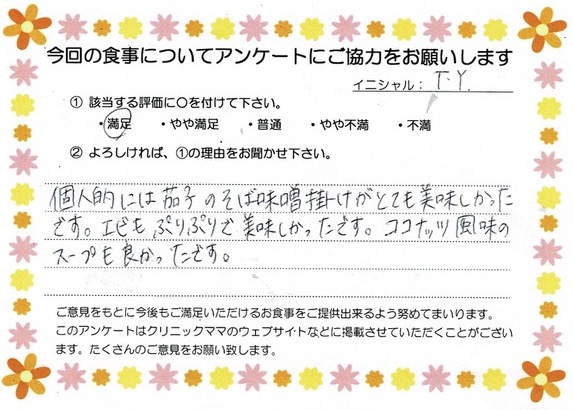 今回の食事についてアンケートにご協力をお願いします
イニシャル： T.Y.
① 該当する評価に○を付けて下さい。
・満足 ・やや満足 ・普通 ・やや不満 ・不満
② よろしければ、①の理由をお聞かせ下さい。
個人的には茄子のそば味噌掛けがとても美味しかった
です。エビもぷりぷりで美味しかったです。ココナッツ風味の
スープも良かったです。
ご意見をもとに今後もご満足いただけるお食事をご提供出来るよう努めてまいります。
このアンケートはクリニックママのウェブサイトなどに掲載させていただくことがござい
ます。たくさんのご意見をお願い致します。